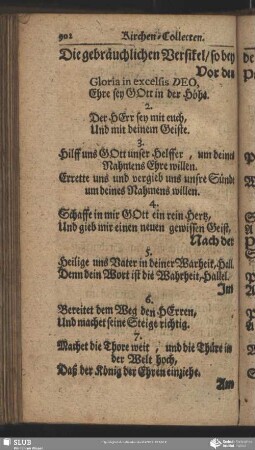 902 Kirchen-Collecten.
Die gebräuchlichen Versikel/ so bey
Vor den
Gloria in excelsis DEO,
Ehre sey GOtt in der Höhe.
2.
Der HErr sey mit euch,
Und mit deinem Geiste.
3.
Hilff uns GOtt unser Helffer, um deines
Nahmens Ehre willen.
Errette uns und vergieb uns unsre Sünde
um deines Nahmens willen.
4.
Schaffe in mir GOtt ein rein Hertz,
Und gieb mir einen neuen gewissen Geist,
Nach der
5.
Heilige uns Vater in deiner Warheit, Hall.
Denn dein Wort ist die Wahrheit, Hallel.
Im
6.
Bereitet dem Weg den HErren,
Und machet seine Steige richtig.
7.
Machet die Thore weit, und die Thüre in
der Welt hoch,
Daß der König der Ehren einziehe.
Am
SLUB